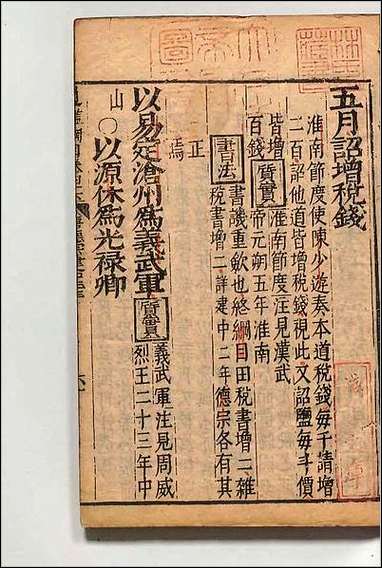 五月詔增稅錢
淮南節度使陳少遊奏本道稅錢每千請增
二百詔他道皆增稅錢視此又詔鹽每斗價
皆增
百錢
質實
淮南節度注見漢武
帝元朔五年淮南
書法
書譏重歛也終綱目田稅書增二雜
稅書增二詳建中二年德宗各有其
正
焉
以易定滄州爲義武軍
質實
義武軍注見周威
烈王二十三年中
山○以源休爲光禄卿